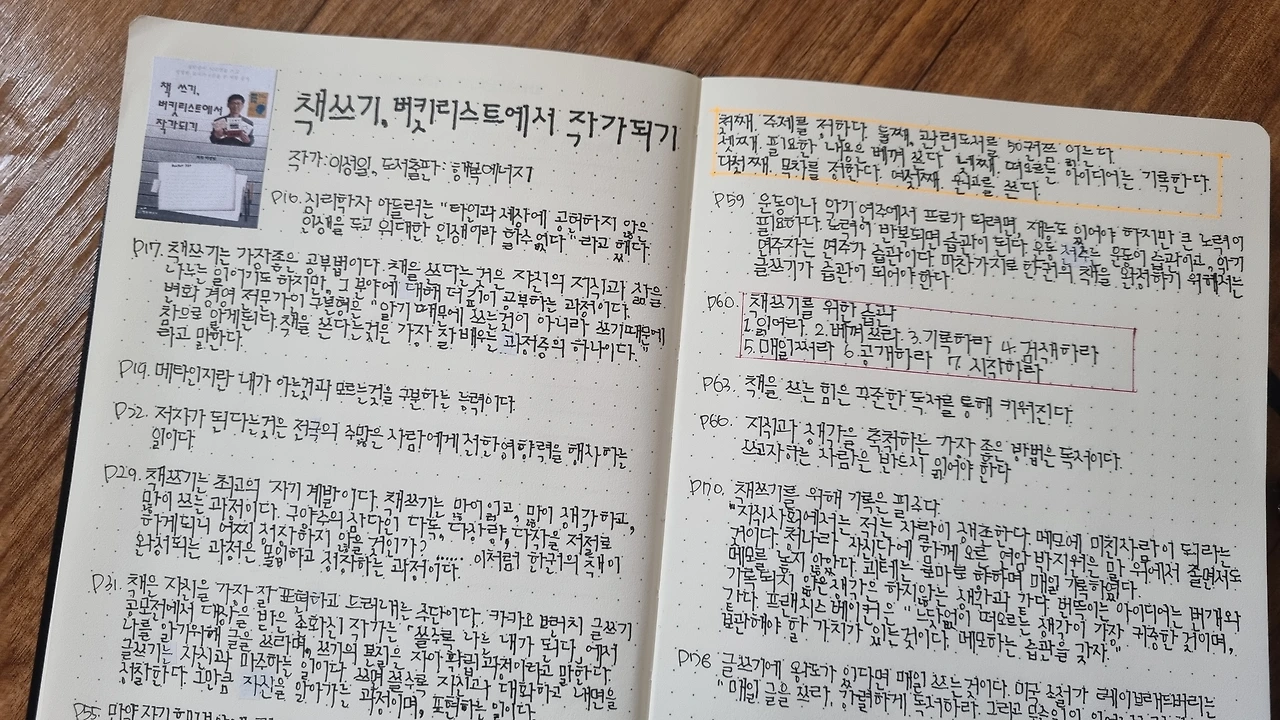 책 쓰기,
버킷리스트에서
작가되기
책쓰기, 버킷리스트에서 작가되기
작가: 이성일, 도서출판: 행복에너지
P16. 심리학자 아들러는 "타인과 세상에 공헌하지 않은
인생을 두고 위대한 인생이라 할수 없다" 라고 했다.
P17. 책쓰기는 가장좋은 공부법이다. 책을 쓰다는것은 자신의 지식과 삶을
나누는 일이기도 하지만, 그 분야에 대해 더 깊이 공부하는 과정이다.
변화 경영 전문가인 구본형은 "알기 때문에 쓰는것이 아니라 쓰기때문에
참으로 알게된다. 책을 쓴다는것은 가장 잘 배우는 과정중의 하나이다."
라고 말한다.
P19. 메타인지란 내가 아는것과 모르는것을 구분하는 능력이다.
P32. 저자가 된다는것은 전국의 수많은 사람에게 선한영향력을 행사하는
일이다.
P29. 책쓰기는 최고의 자기 계발이다. 책쓰기는 많이 읽고, 많이 생각하고,
많이 쓰는 과정이다. 구양수의 삼다인 다독, 다상량, 다작을 저절로
하게되니 어찌 성장하지 않을 것인가?
완성되는 과정은 몰입하고 성장하는 과정이다. ...... 이처럼 한권의 책이
P31. 책은 자신을 가장 잘 표현하고 드러내는 수단이다. 카카오 브런치 글쓰기
공모전에서 대상을 받은 조화신 작가는 "쓸수록 나는 내가 된다. 에서
나를 알기위해 글을 쓰라며, 쓰기의 본질은 자아 확립 과정이라고 말한다.
글쓰기는 자신과 마주하는 일이다. 쓰면 쓸수록 자신과 대화하고 내면을
성찰한다. 그만큼 자신을 알아가는 과정이며, 표현하는 일이다.
P55.
첫째. 주제를 정하다. 둘째. 관련도서를 50권쯤 읽는다.
세째. 필요한 내용은 베껴 쓴다. 네째. 떠오르는 아이디어는 기록한다.
다섯째. 목차를 정한다. 여섯째. 원고를 쓴다.
P59 운동이나 악기 연주에서 프로가 되려면, 재능도 있어야 하지만 큰 노력이
필요하다. 노력이 반복되면 습관이 된다. 운동 선수는 운동이 습관이고, 악기
연주자는 연주가 습관이다. 마찬가지로 한권의 책을 완성하기 위해서는
글쓰기가 습관이 되어야 한다.
P60. 책쓰기를 위한 습관
1.읽어라. 2.베껴쓰라. 3.기록하라 4. 검색하라
5.매일써라 6.공개하라 7. 시작하라
P63. 책을 쓰는 힘은 꾸준한 독서를 통해 키워진다.
P66. 지식과 생각을 축적하는 가장 좋은 방법은 독서이다.
쓰고자하는 사람은 반드시 읽어야 한다
P70. 책쓰기를 위해 기록은 필수다.
"지식사회에서는 적는 사람이 생존한다. 메모에 미친사람이 되라는
것이다. 청나라 사신단에 함께 오른 연암 박지원은 말 위에서 졸면서도
메모를 놓지 않았다. 괴테는 로마로 향하며 매일 기록하였다.
기록되지 않은생각은 하지않는 생각과 같다. 번뜩이는 아이디어는 번개와
같다. 프랜시스 베이컨은 "느닷없이 떠오르는 생각이 가장 귀중한 것이며,
보관해야 할 가치가 있는것이다. 메모하는 습관을 갖자"
글쓰기에 왕도가 있다면 매일 쓰는것이다. 미국 소설가 레이브래드버리는
"매일 글을 쓰라, 강렬하게 독서하라. 그리고